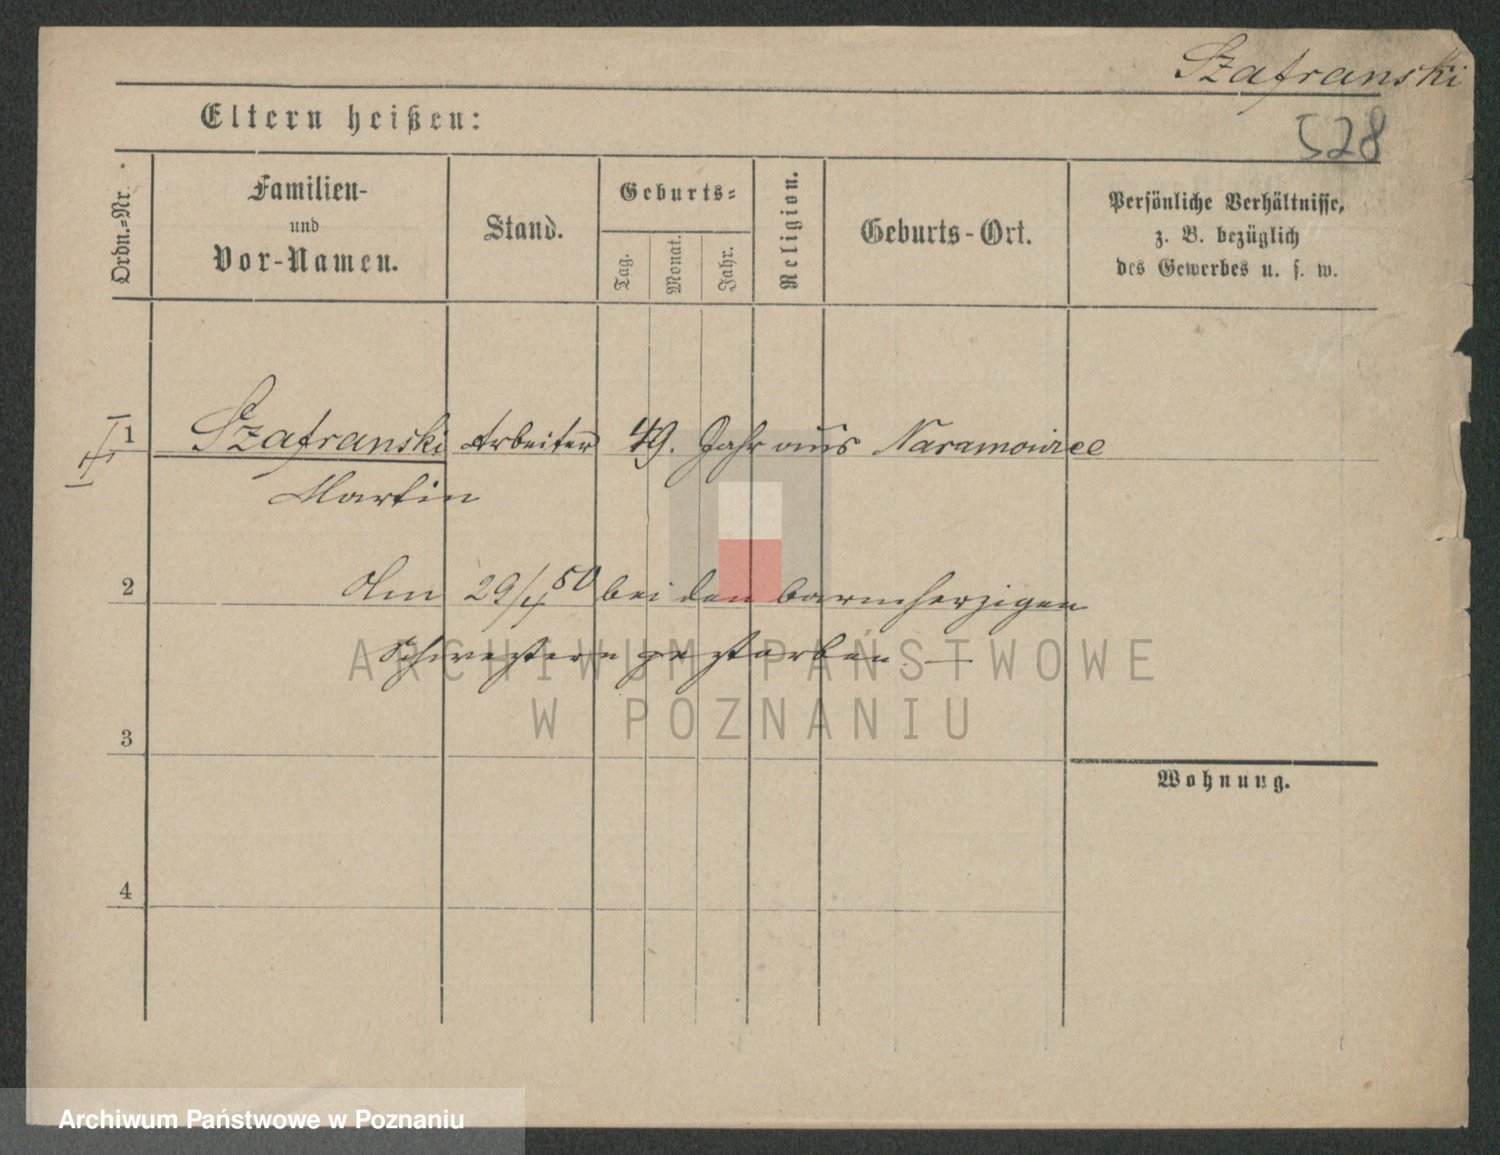 Szafranski
528
Eltern heißen:
Ordn.-Nr.
Familien-
und
Vor-Namen.
Stand.
Geburts-
Tag.
Monat.
Jahr.
Religion.
Geburts-Ort.
Persönliche Verhältnisse,
z. B. bezüglich
des Gewerbes u. s. w.
1
Szafranski Arbeiter 49. Jahr aus Naramowice
Martin
2
Am 29/4 50 bei den barmherzigen
Schwestern gestorben —
ARCHIWUM PAŃSTWOWE
W POZNANIU
3
Wohnung.
4
Archiwum Państwowe w Poznaniu